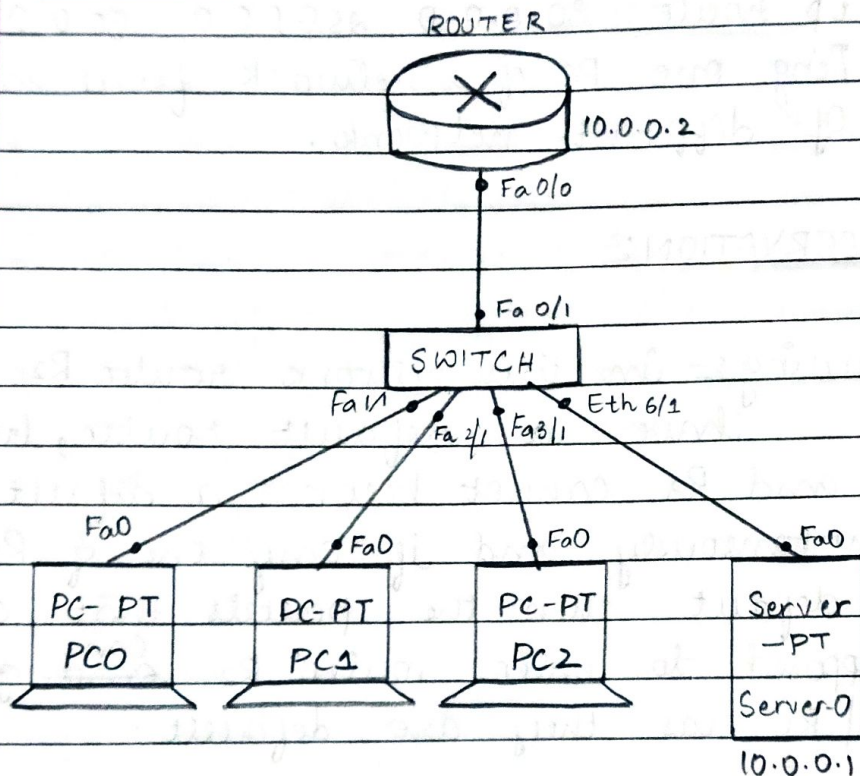 ROUTER
10.0.0.2
Fa0/0
Fa 0/1
SWITCH
Fa1/1
Eth 6/1
Fa 2/1
Fa3/1
Fa0
Fa0
Fa0
Fa0
PC-PT
PC0
PC-PT
PC1
PC-PT
PC2
Server
-PT
Server-0
10.0.0.1